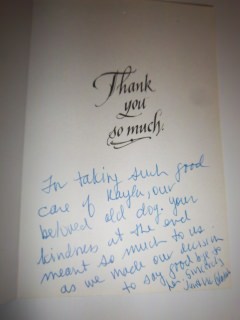 Thank
you
so much.
For taking such good
care of Kayla, our
beloved old dog. Your
kindness at the end
meant so much to us
as we made our decision
to say goodbye to
her. Sincerely,